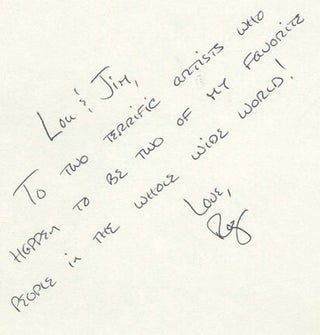 Lou & Jim,
To two terrific artists who
happen to be two of my favorite
people in the whole wide world!
Love,